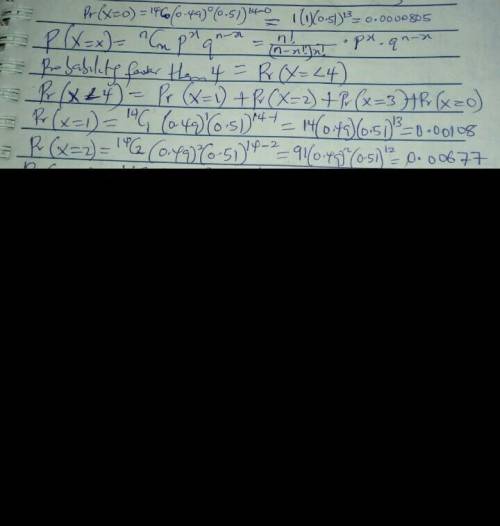 Pr(x=0) = ¹⁴C₀(0.49)⁰(0.51)¹⁴⁻⁰ = 1(1)(0.51)¹³ = 0.0000805
P(X=x) = ⁿCₓ pˣ qⁿ⁻ˣ = n!/(n-x!)x! · pˣ · qⁿ⁻ˣ
Probability fewer than 4 = Pr(X=<4)
Pr(x<4) = Pr(x=1) + Pr(x=2) + Pr(x=3) + Pr(x=0)
Pr(x=1) = ¹⁴C₁ (0.49)¹(0.51)¹⁴⁻¹ = 14(0.49)(0.51)¹³ = 0.00108
Pr(x=2) = ¹⁴C₂ (0.49)²(0.51)¹⁴⁻² = 91(0.49)²(0.51)¹² = 0.00677